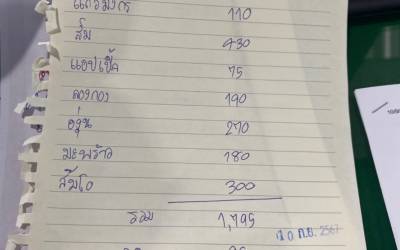 แก้วมังกร 110
ส้ม 430
แอปเปิ้ล 75
ลองกอง 190
องุ่น 270
มะพร้าว 180
ส้มโอ 300
รวม 1,795
10 ก.ย. 2567